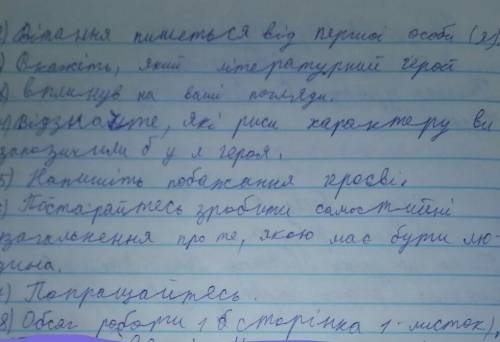 2) Вітання пишеться від першої особи (я).
) Скажіть, який літературний герой
) вплинув на ваші погляди.
) Відзначте, які риси характеру ви
запозичили б у я героя.
5) Напишіть побажання героєві.
) Постарайтесь зробити самостійні
узагальнення про те, якою має бути лю-
дина.
) Попращайтесь.
8) Обсяг роботи 1 сторінка 1 листок),